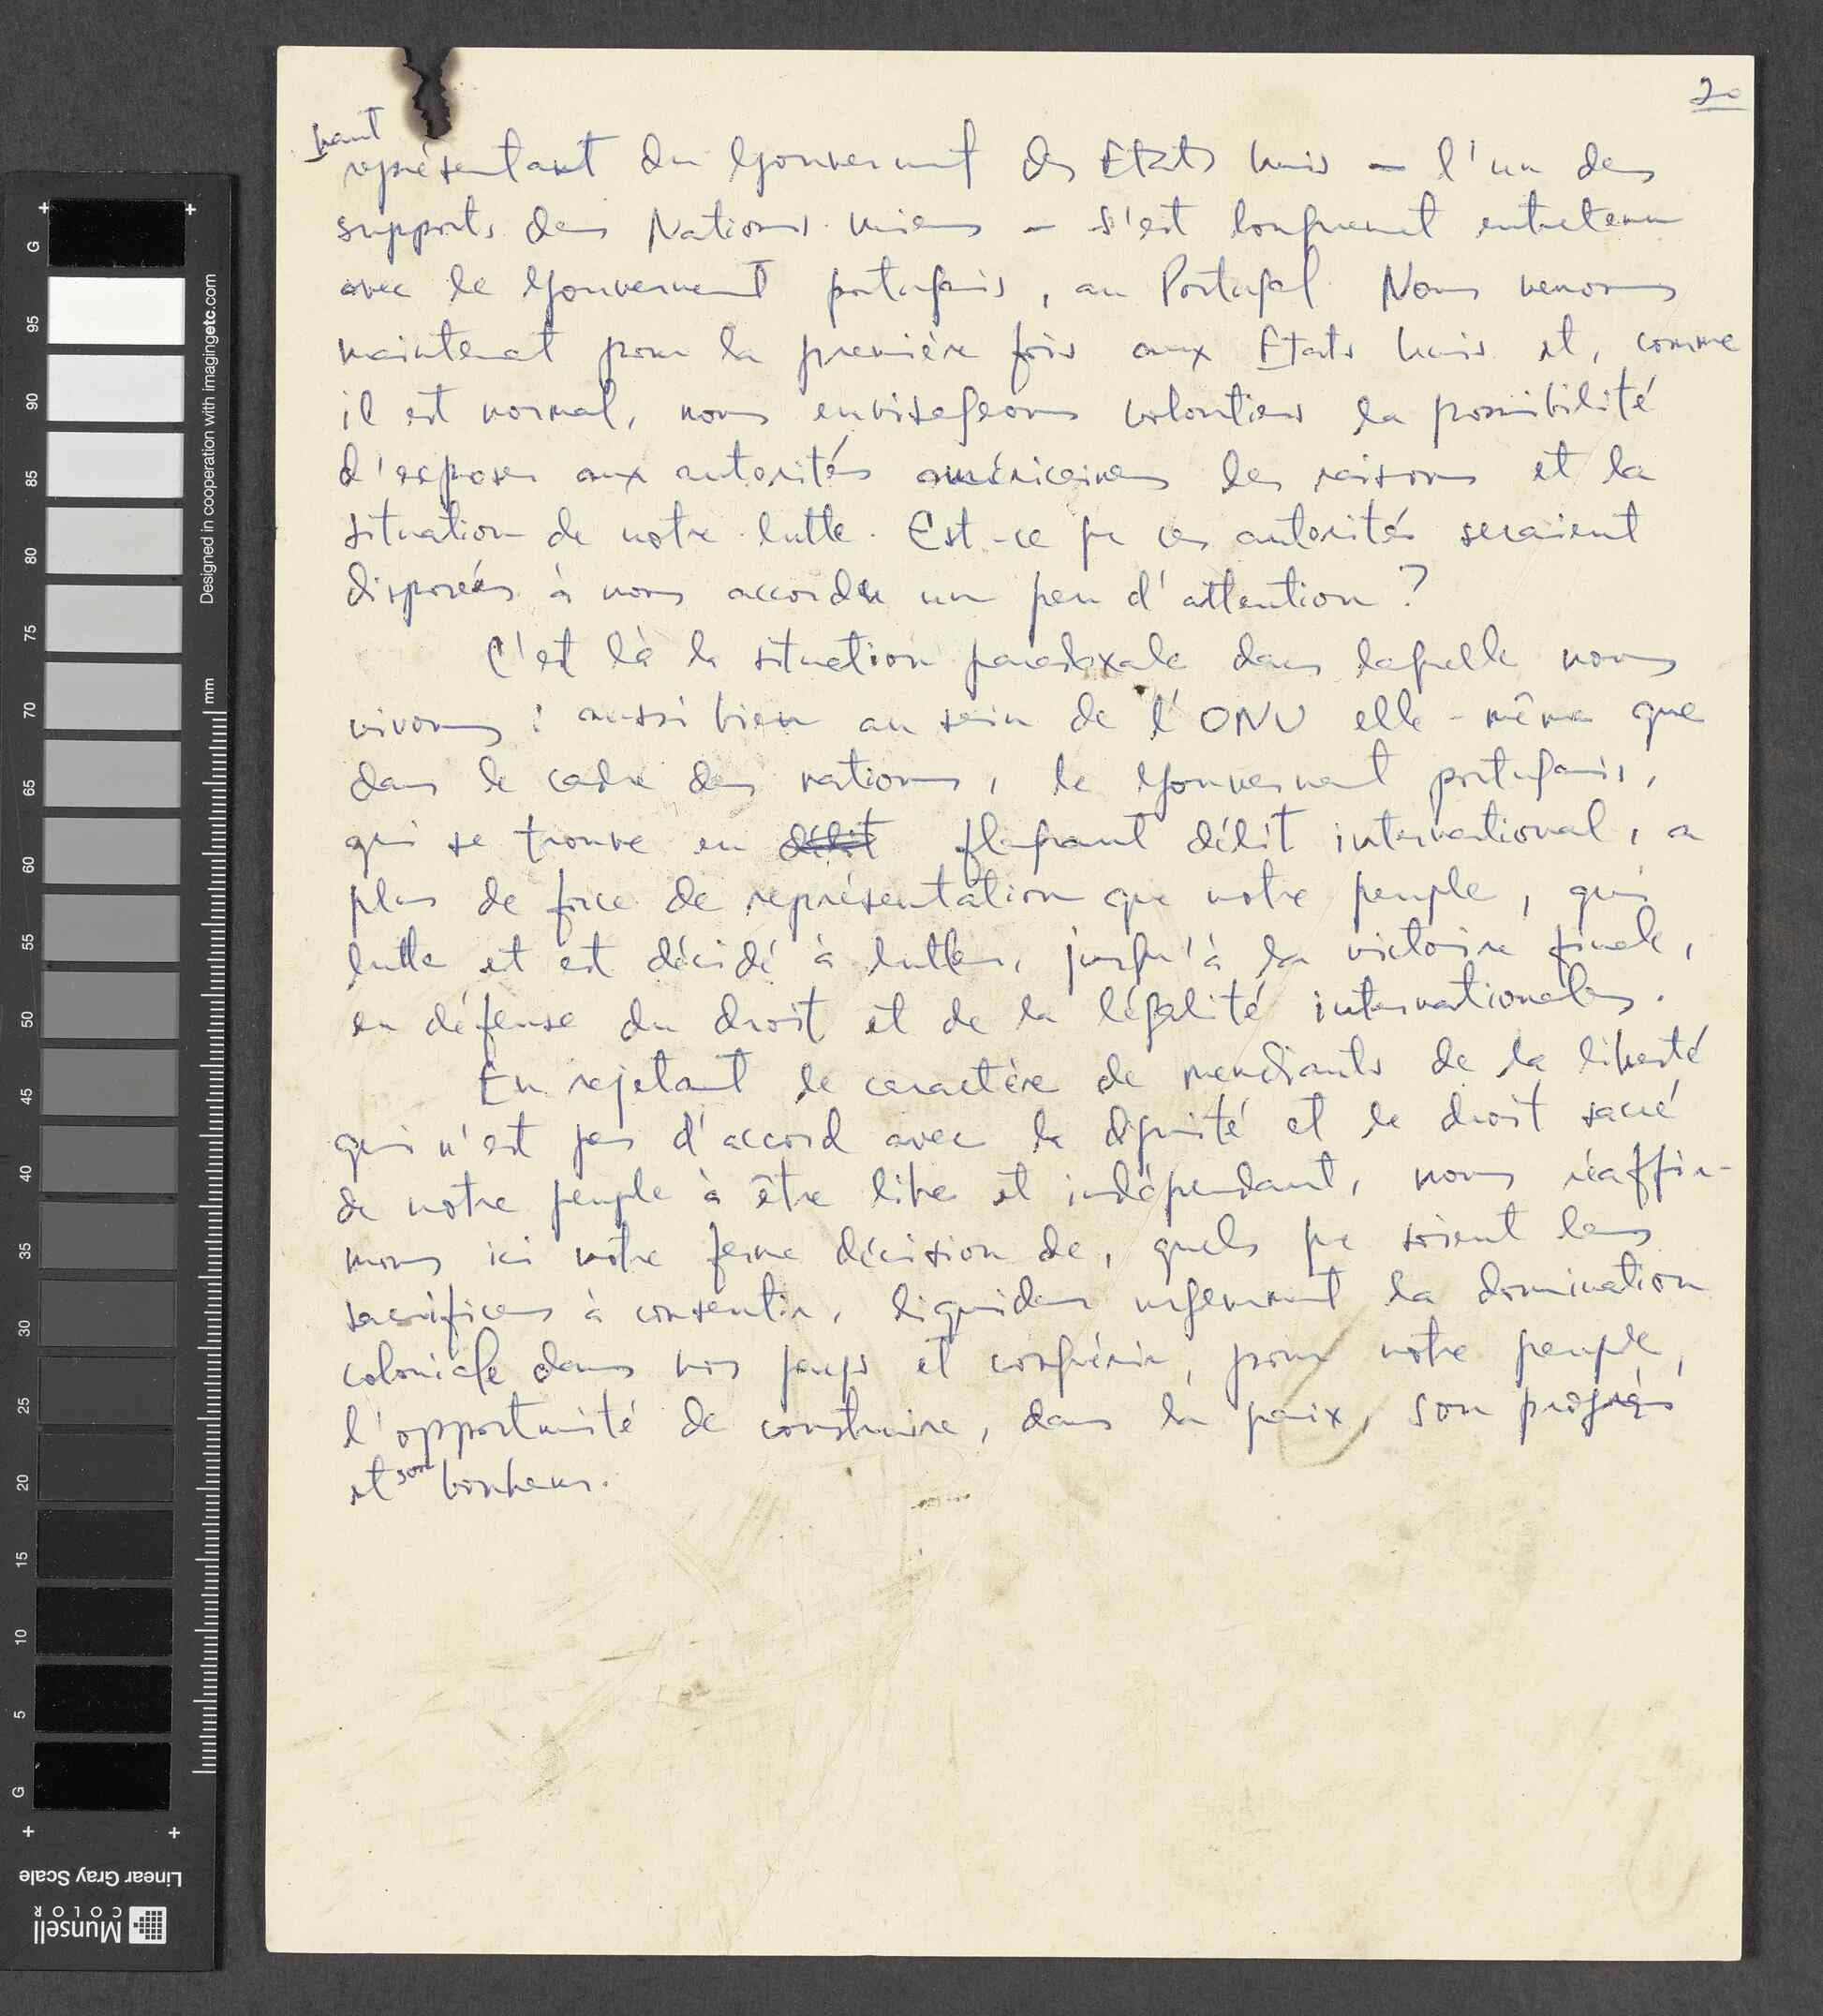 20
haut
représentant du Gouvernement des Etats Unis – l'un des
supports des Nations Unies – s'est longuement entretenu
avec le Gouvernement portugais, au Portugal. Nous venons
maintenant pour la première fois aux Etats Unis et, comme
il est normal, nous envisageons volontiers la possibilité
d'exposer aux autorités américaines les raisons et la
situation de notre lutte. Est-ce que ces autorités seraient
disposées à nous accorder un peu d'attention ?
C'est là la situation paradoxale dans laquelle nous
vivons : aussi bien au sein de l'ONU elle-même que
dans le cadre des nations, le Gouvernement portugais,
qui se trouve en délit flagrant délit international, a
plus de force de représentation que notre peuple, qui
lutte et est décidé à lutter, jusqu'à la victoire finale,
en défense du droit et de la légalité internationales.
En rejetant le caractère de mendiants de la liberté
qui n'est pas d'accord avec la dignité et le droit sacré
de notre peuple à être libre et indépendant, nous réaffir-
mons ici notre ferme décision de, quels que soient les
sacrifices à consentir, liquider urgemment la domination
coloniale dans nos pays et conquérir, pour notre peuple,
l'opportunité de construire, dans la paix, son progrès
et son bonheur.
G
95
90
85
80
75
70
65
60
55
50
45
40
35
30
25
20
15
10
5
G
Designed in cooperation with imagingetc.com
mm
Linear Gray Scale
Munsell
COLOR